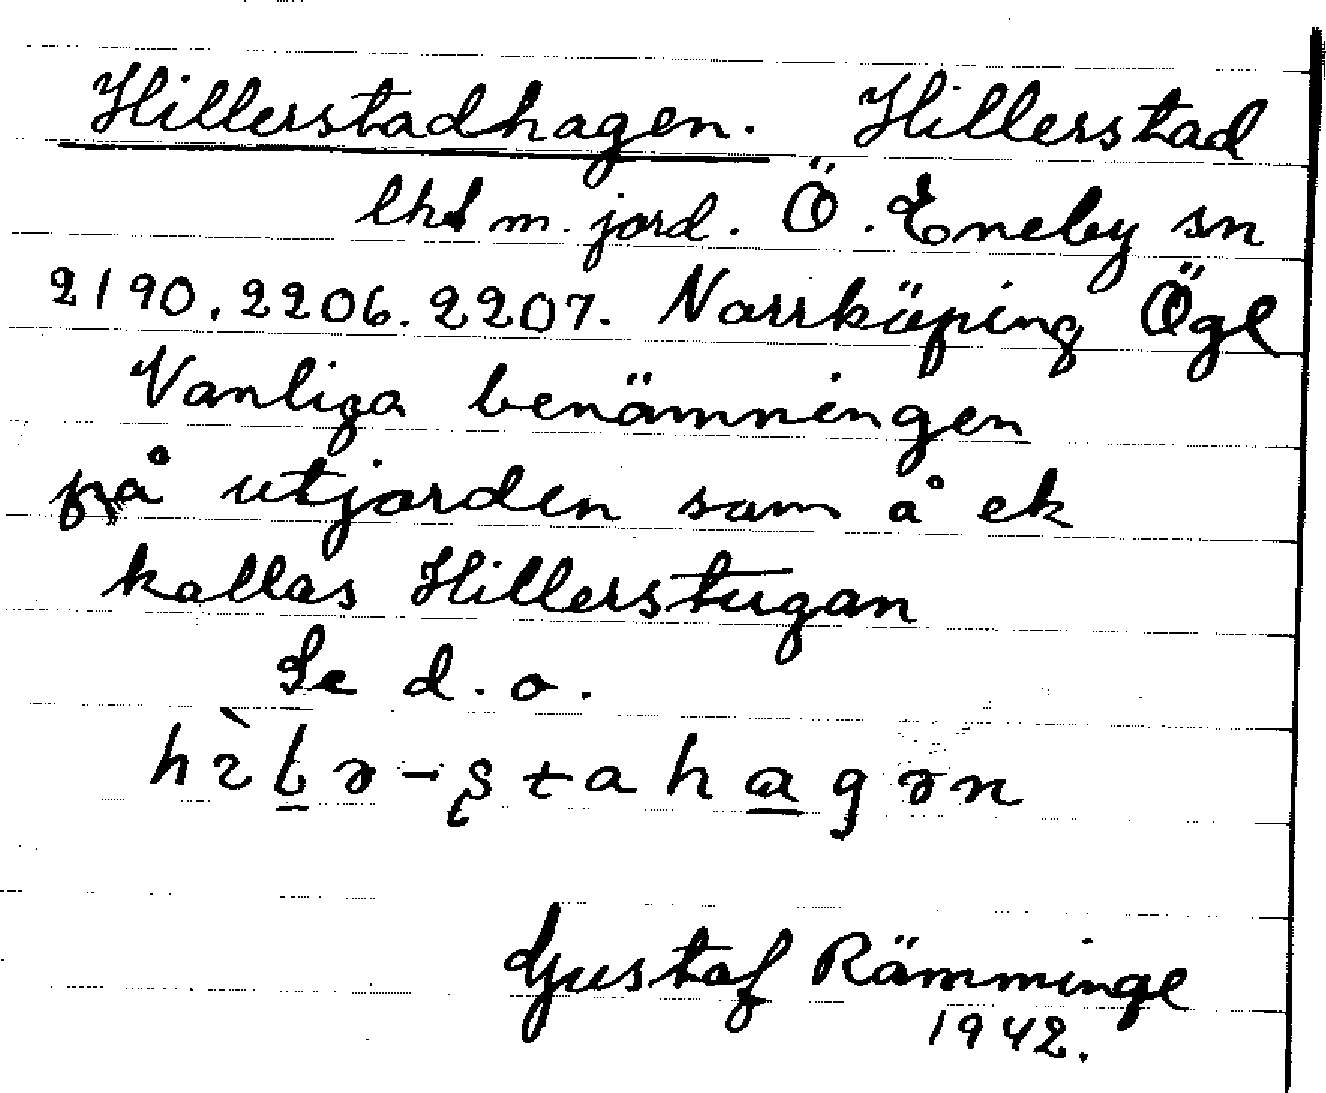 Hillerstadhagen. Hillerstad
lhd m. jord. Ö. Eneby sn
2190. 2206. 2207. Norrköping Ögl
Vanliga benämningen
på utjorden som å ek
kallas Hillerstugan
Se d. o.
Gustaf Rämminge
1942.